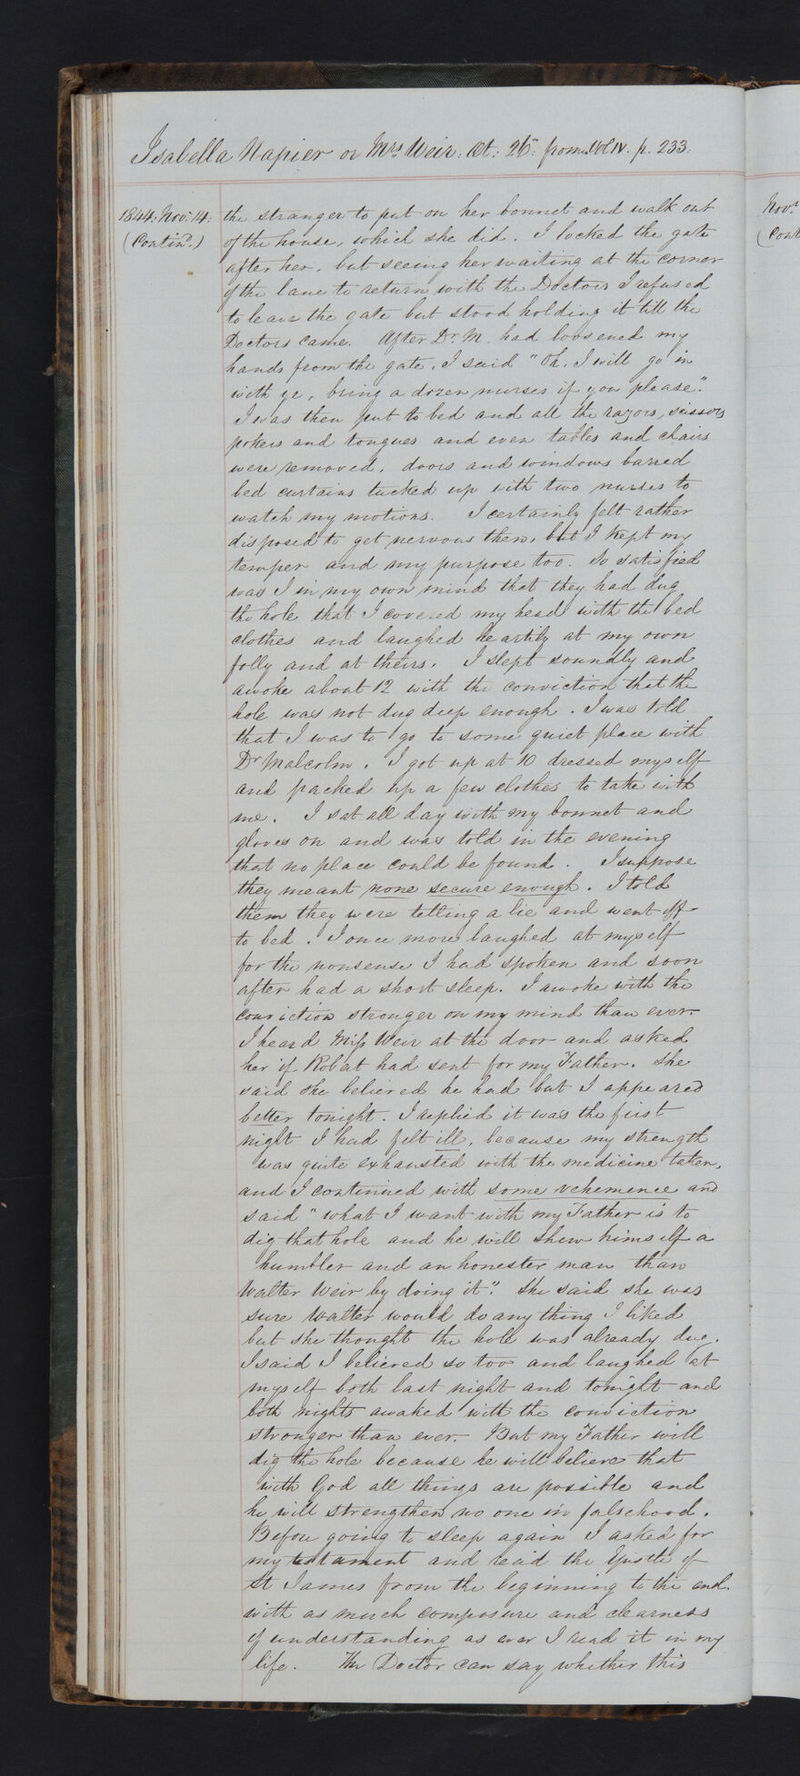 Isabella Napier or Mrs Weir. Æt: 26. from Vol IV. p. 233.
1844. Nov: 14.
(Contind.)
the stranger to put on her bonnet and walk out
of the house, which she did. I locked the gate
after her, but seeing her waiting at the corner
of the lane to return with the Doctors I refused
to leave the gate but stood holding it till the
Doctors came. After Dr. M. had loosened my
hands from the gate, I said "Oh, I will go in
with ye, bring a dozen nurses if you please."
I was then put to bed and all the razors, scissors
pokers and tongues and even tables and chairs
were removed, doors and windows barred
bed curtains tucked up with two nurses to
watch my motions. I certainly felt rather
disposed to get nervous then, but I kept my
temper and my purpose too. So satisfied
was I in my own mind that they had dug
the hole that I covered my head with the bed
clothes and laughed heartily at my own
folly and at theirs. I slept soundly and
awoke about 12 with the conviction that the
hole was not dug deep enough. I was told
that I was to go to some quiet place with
Dr Malcolm. I got up at 10 dressed myself
and packed up a few clothes to take with
me. I sat all day with my bonnet and
gloves on and was told in the evening
that no place could be found. I suppose
they meant none secure enough. I told
them they were telling a lie and went off
to bed. I once more laughed at myself
for the nonsense I had spoken and soon
after had a short sleep. I awoke with the
conviction stronger on my mind than ever.
I heard Miss Weir at the door and asked
her if Robert had sent for my Father. She
said she believed he had but I appeared
better tonight. I replied it was the first
night I had felt ill, because my strength
was quite exhausted with the medicine taken,
and I continued with some vehemence and
said "what I want with my Father is to
dig that hole and he will shew himself a
humbler and an honester man than
Walter Weir by doing it". She said she was
sure Walter would do any thing I liked
but she thought the hole was already dug.
I said I believed so too and laughed at
myself both last night and tonight and
both nights awaked with the conviction
stronger than ever. But my Father will
dig the hole because he will believe that
with God all things are possible and
he will strengthen no one in falsehood.
Before going to sleep again I asked for
my testament and read the Epistle of
St James from the beginning to the end.
with as much composure and clearness
of understanding as ever I read it in my
life. The Doctor can say whether this
Novr
(Cont